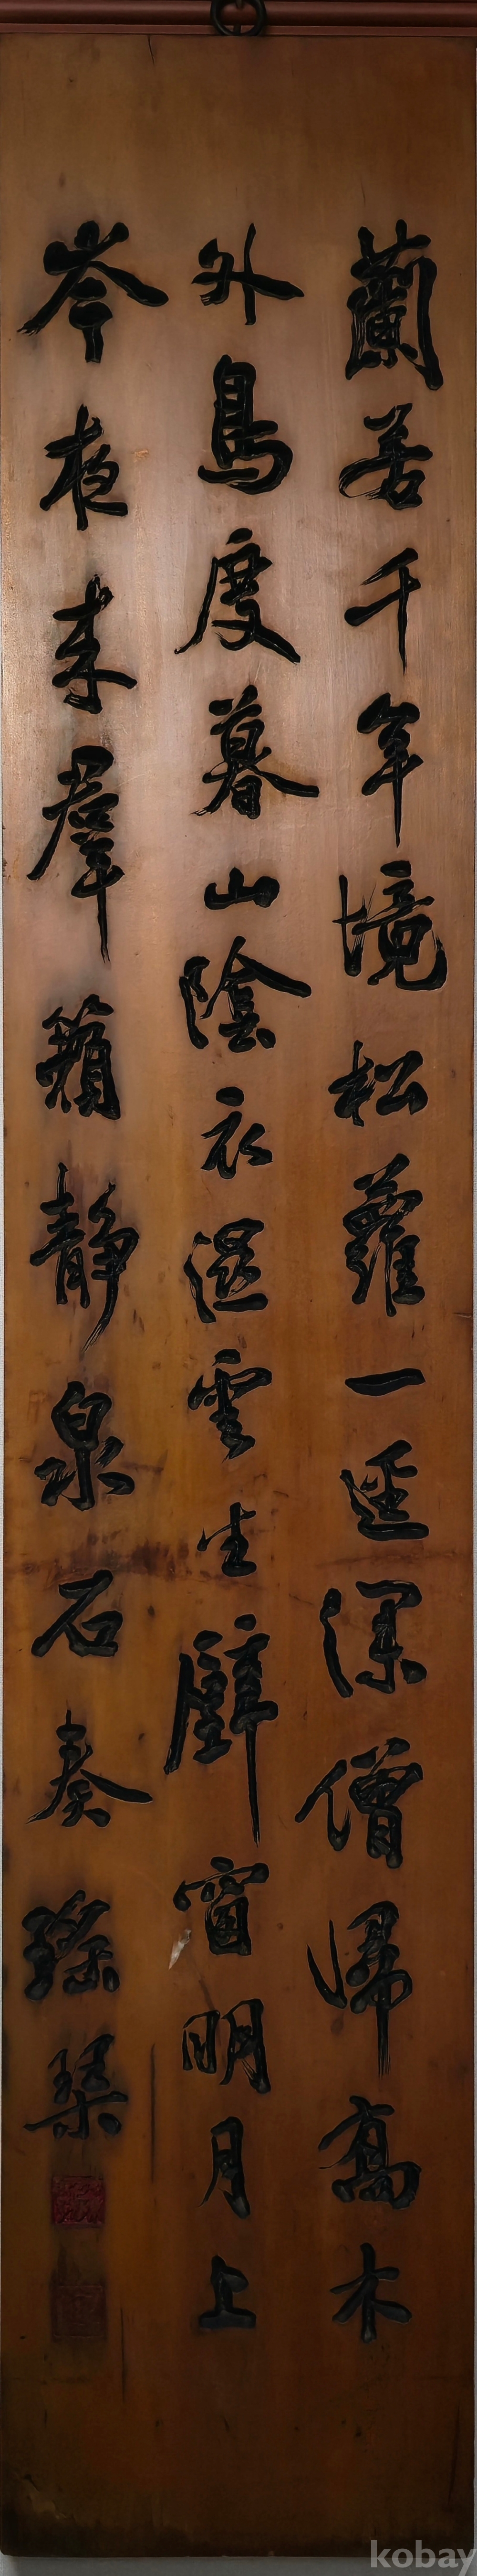 蘭若千年境松蘿一逕深僧帰高木
外鳥度暮山陰衣湿雲生壁窗明月上
岑夜来羣籟静泉石奏瑤琴
kobay